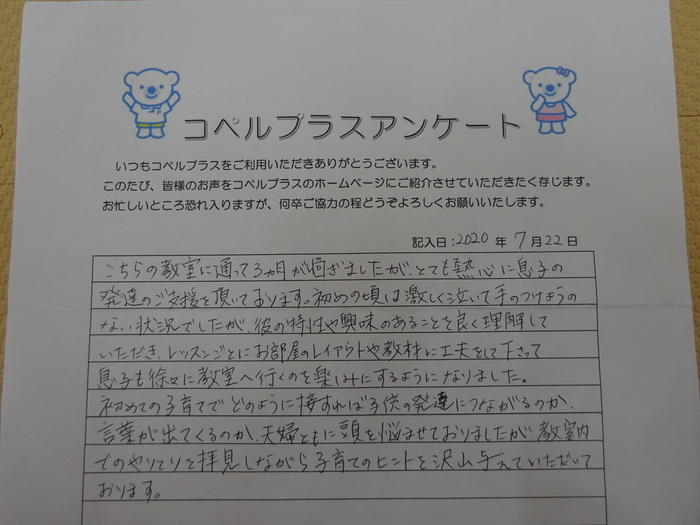 コペルプラスアンケート
いつもコペルプラスをご利用いただきありがとうございます。
このたび、皆様のお声をコペルプラスのホームページにご紹介させていただきたく存じます。
お忙しいところ恐れ入りますが、何卒ご協力の程どうぞよろしくお願いいたします。
記入日:2020 年 7月22日
こちらの教室に通って3ヵ月が過ぎましたが、とても熱心に息子の
発達のご支援を頂いております。初めの頃は激しく泣いて手のつけようの
ない状況でしたが、彼の特性や興味のあることを良く理解して
いただき、レッスンごとにお部屋のレイアウトや教材に工夫をして下さって
息子も徐々に教室へ行くのを楽しみにするようになりました。
初めての子育てでどのように接すれば子供の発達につながるのか、
言葉が出てくるのか、夫婦ともに頭を悩ませておりましたが教室内
でのやりとりを拝見しながら子育てのヒントを沢山与えていただいて
おります。